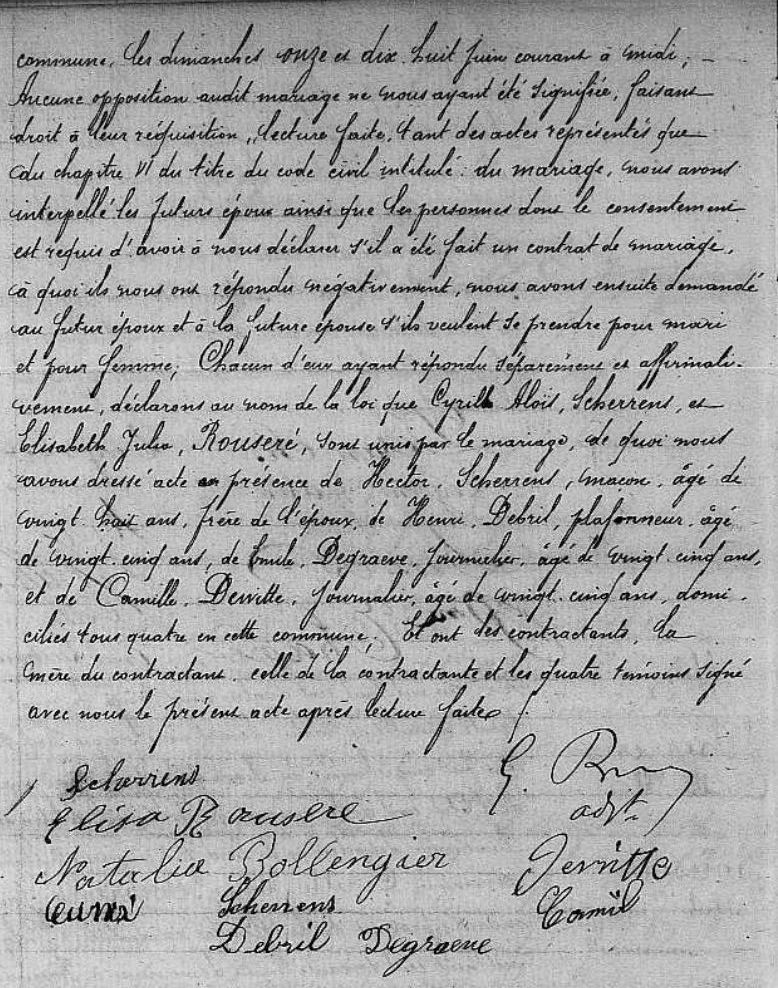 commune, les dimanches onze et dix-huit juin courant à midi; –
Aucune opposition audit mariage ne nous ayant été signifiée, faisant
droit à leur réquisition, lecture faite, tant des actes représentés que
du chapitre VI du titre du code civil intitulé: du mariage, nous avons
interpellé les futurs époux ainsi que les personnes dont le consentement
est requis d'avoir à nous déclarer s'il a été fait un contrat de mariage,
à quoi ils nous ont répondu négativement, nous avons ensuite demandé
au futur époux et à la future épouse s'ils veulent se prendre pour mari
et pour femme; Chacun d'eux ayant répondu séparément et affirmati-
vement, déclarons au nom de la loi que Cyrill Aloïs, Scherrens, et
Elisabeth Julia, Rouseré, sont unis par le mariage, de quoi nous
avons dressé acte en présence de Hector, Scherrens, maçon, âgé de
vingt-huit ans, frère de l'époux, de Henri, Debril, plafonneur, âgé
de vingt-cinq ans, de Emile, Degraeve, journalier, âgé de vingt-cinq ans,
et de Camille, Dewitte, journalier, âgé de vingt-cinq ans, domi-
ciliés tous quatre en cette commune; Et ont les contractants, la
mère du contractant, celle de la contractante et les quatre témoins signé
avec nous le présent acte après lecture faite
Scherrens
Elisa Rousere
adjt.
Natalia Bollengier
Dewitte
Scherrens
Camil
Debril Degraeve